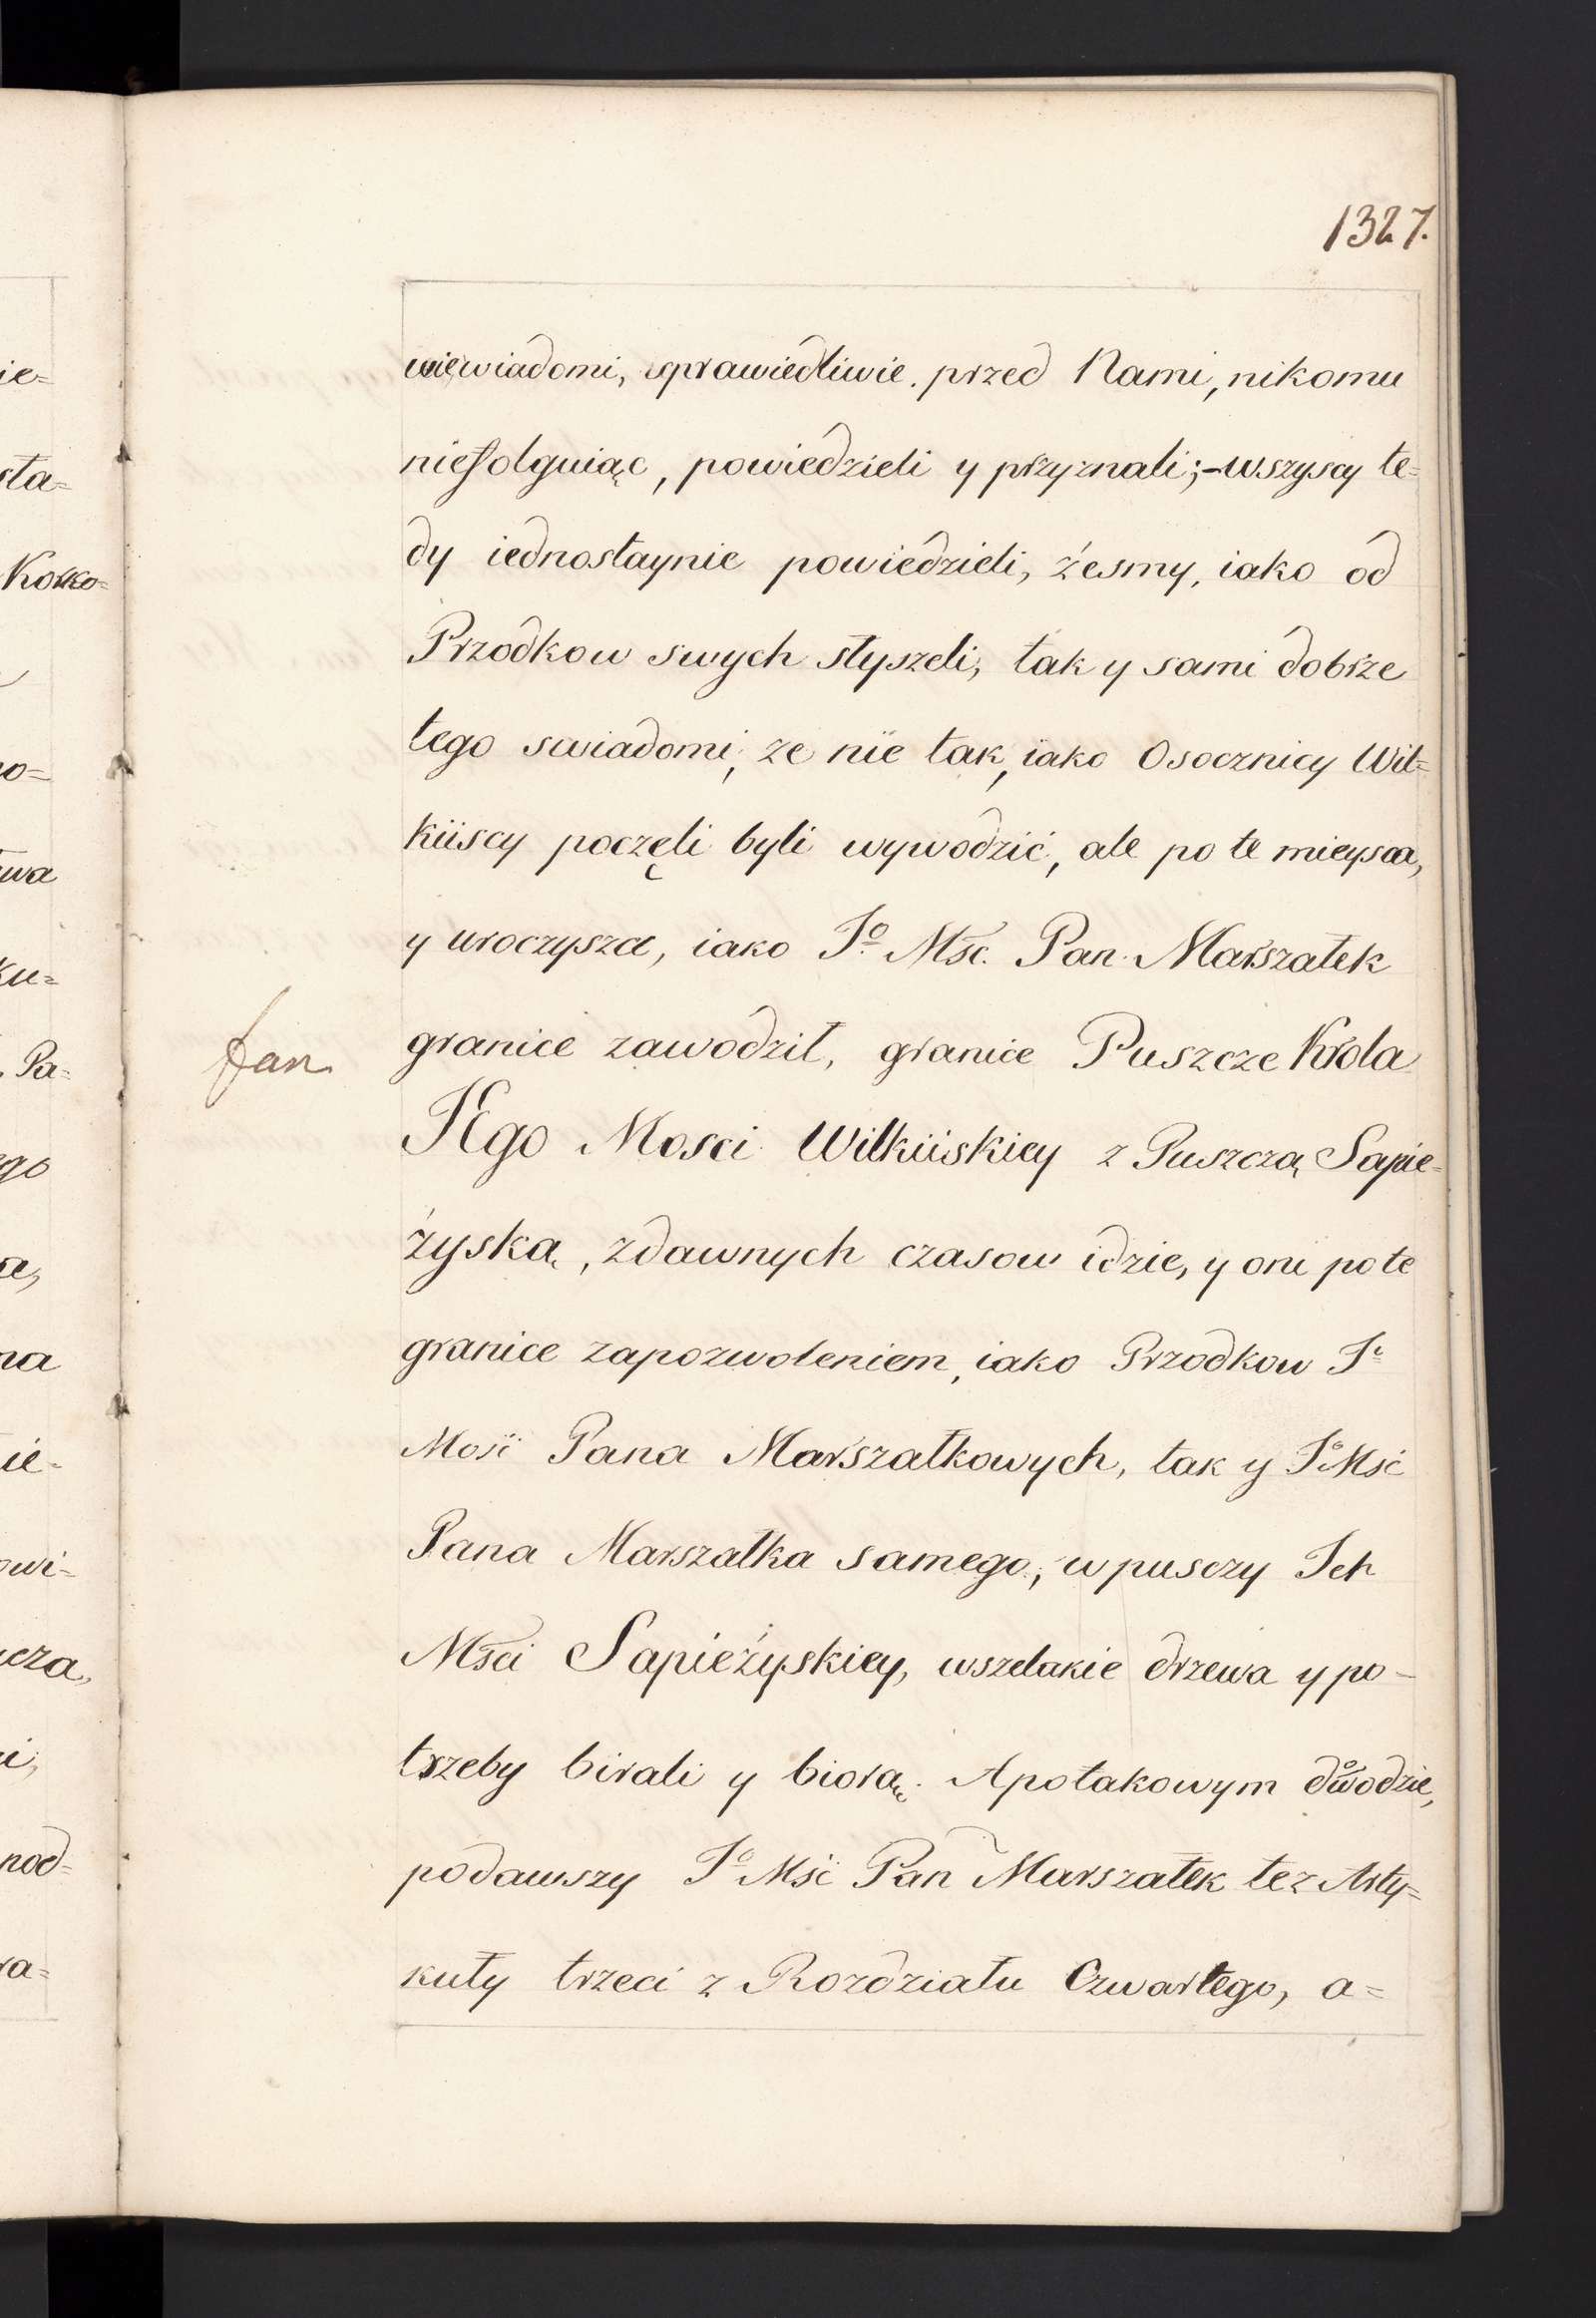 1327.
wie wiadomi, sprawiedliwie. przed Nami, nikomu
niefolguiąc, powiedzieli y przyznali;-wszyscy te=
dy iednostaynie powiedzieli, żesmy, iako od
Przodkow swych słyszeli, tak y sami dobrze
tego swiadomi, ze nie tak, iako Osocznicy Wil=
kiiscy poczęli byli wywodzić, ale po te mieysca,
y uroczysza, iako Jº Mśc. Pan Marszałek
granice zawodził, granice Puszcze Krola
JEgo Mosci Wilkiiskiey z Puszczą Sapie=
żyską, zdawnych czasow idzie, y oni po te
granice zapozwoleniem, iako Przodkow Jº
Mosi Pana Marszałkowych, tak y Jº Mśc
Pana Marszałka samego, w pusczy Ich
Mści Sapieżyskiey, wszelakie drzewa y po-
trzeby birali y biorą. Apotakowym dowodzie,
podawszy Jº Mśc Pan Marszałek tez Arty=
kuły trzeci z Rozdziału Czwartego, a=
ie=
sta=
Korko=
no=
ku=
Pa=
ego
na
ie=
owi=
nod=
ra=